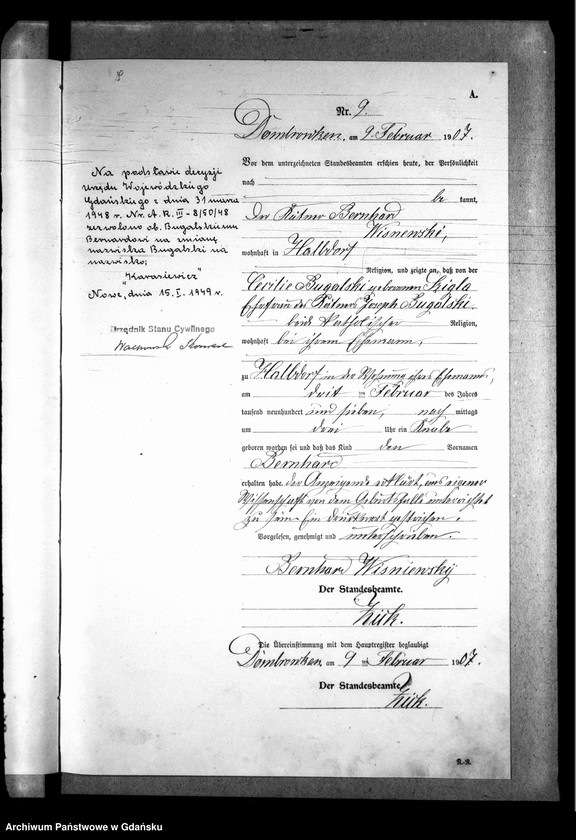 A.
Nr. 9.
Dombrowken, am 9. Februar 1907.
Vor dem unterzeichneten Standesbeamten erschien heute, der Persönlichkeit
nach
be kannt,
Der Rätner Bernhard
Wisnewski,
wohnhaft in Halbdorf
Religion, und zeigte an, daß von der
Cecilie Bugalski geborenen Szigla
Ehefrau des Rätners Joseph Bugalski
beide katholischer Religion,
wohnhaft bei ihrem Ehemann,
zu Halbdorf in der Wohnung ihres Ehemanns,
am drit Februar des Jahres
tausend neunhundert und sieben, nach mittags
um drei Uhr ein Knabe
geboren worden sei und daß das Kind den Vornamen
Bernhard
erhalten habe. Der Anzeigende erklärt, aus eigener
Wissenschaft von dem Geburtsfalle unterrichtet
zu sein. Ein Druckwort gestrichen.
Vorgelesen, genehmigt und unterschrieben.
Bernhard Wisniewsky
Der Standesbeamte.
Die Übereinstimmung mit dem Hauptregister beglaubigt
Dombrowken am 9 Februar 1907.
Der Standesbeamte
Na podstawie decyzji
urzędu Wojewódzkiego
Gdańskiego z dnia 31 marca
1948 r. Nr. A.R. III-8/50/48
zezwolono ob. Bugalskiemu
Bernardowi na zmianę
nazwiska Bugalski na
nazwisko:
"Karasiewicz"
Nowe, dnia 15. I. 1949 r.
Urzędnik Stanu Cywilnego
Archiwum Państwowe w Gdańsku